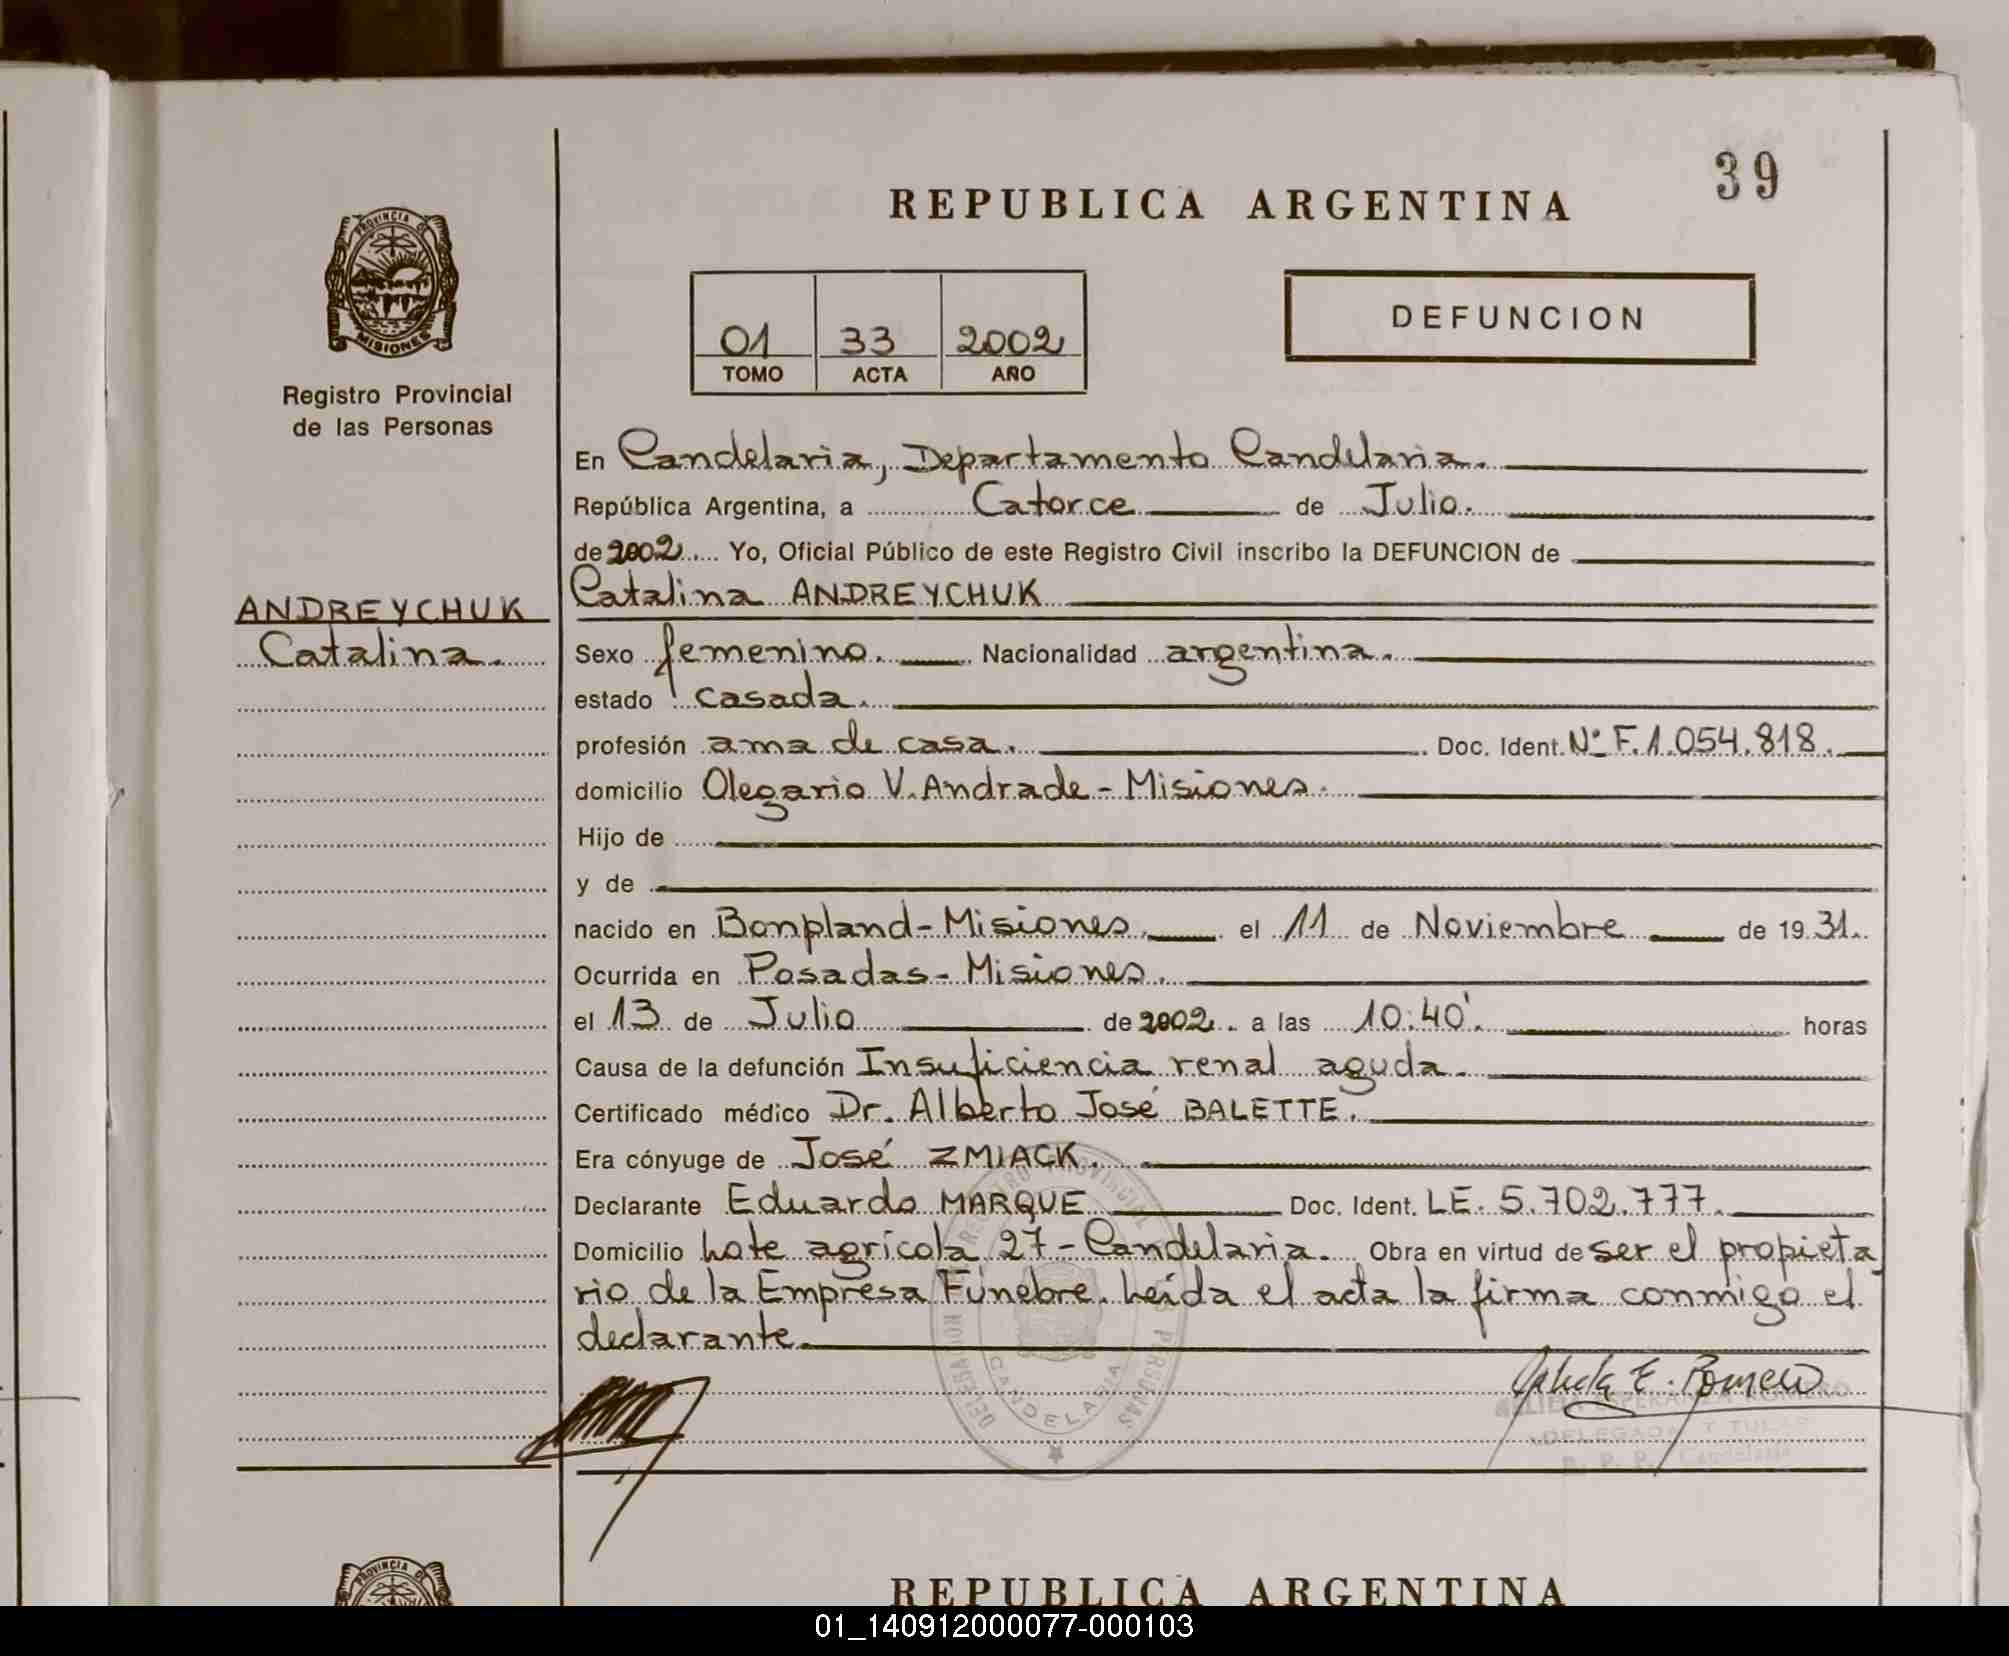 39
REPUBLICA ARGENTINA
PROVINCIA DE
MISIONES
Registro Provincial
de las Personas
01 33 2002
TOMO ACTA AÑO
DEFUNCION
En Candelaria, Departamento Candelaria.
República Argentina, a Catorce de Julio.
de 2002 Yo, Oficial Público de este Registro Civil inscribo la DEFUNCION de
Catalina ANDREYCHUK
ANDREYCHUK
Catalina.
Sexo femenino. Nacionalidad argentina.
estado casada.
profesión ama de casa. Doc. Ident. Nº F.1.054.818.
domicilio Olegario V. Andrade - Misiones.
Hijo de
y de
nacido en Bonpland - Misiones. el 11 de Noviembre de 19 31.
Ocurrida en Posadas - Misiones.
el 13 de Julio de 2002 a las 10:40'. horas
Causa de la defunción Insuficiencia renal aguda.
Certificado médico Dr. Alberto José BALETTE.
Era cónyuge de José ZMIACK.
Declarante Eduardo MARQUE Doc. Ident. LE. 5.702.777.
Domicilio Lote agrícola 27 - Candelaria. Obra en virtud de ser el propieta
rio de la Empresa Fúnebre. Leída el acta la firma conmigo el
declarante.
DELEGACION REGISTRO PROVINCIAL PERSONAS
CANDELARIA
E. Romero
ESPERANZA ROMERO
R. P. P. Candelaria
PROVINCIA DE
REPUBLICA ARGENTINA
01_140912000077-000103